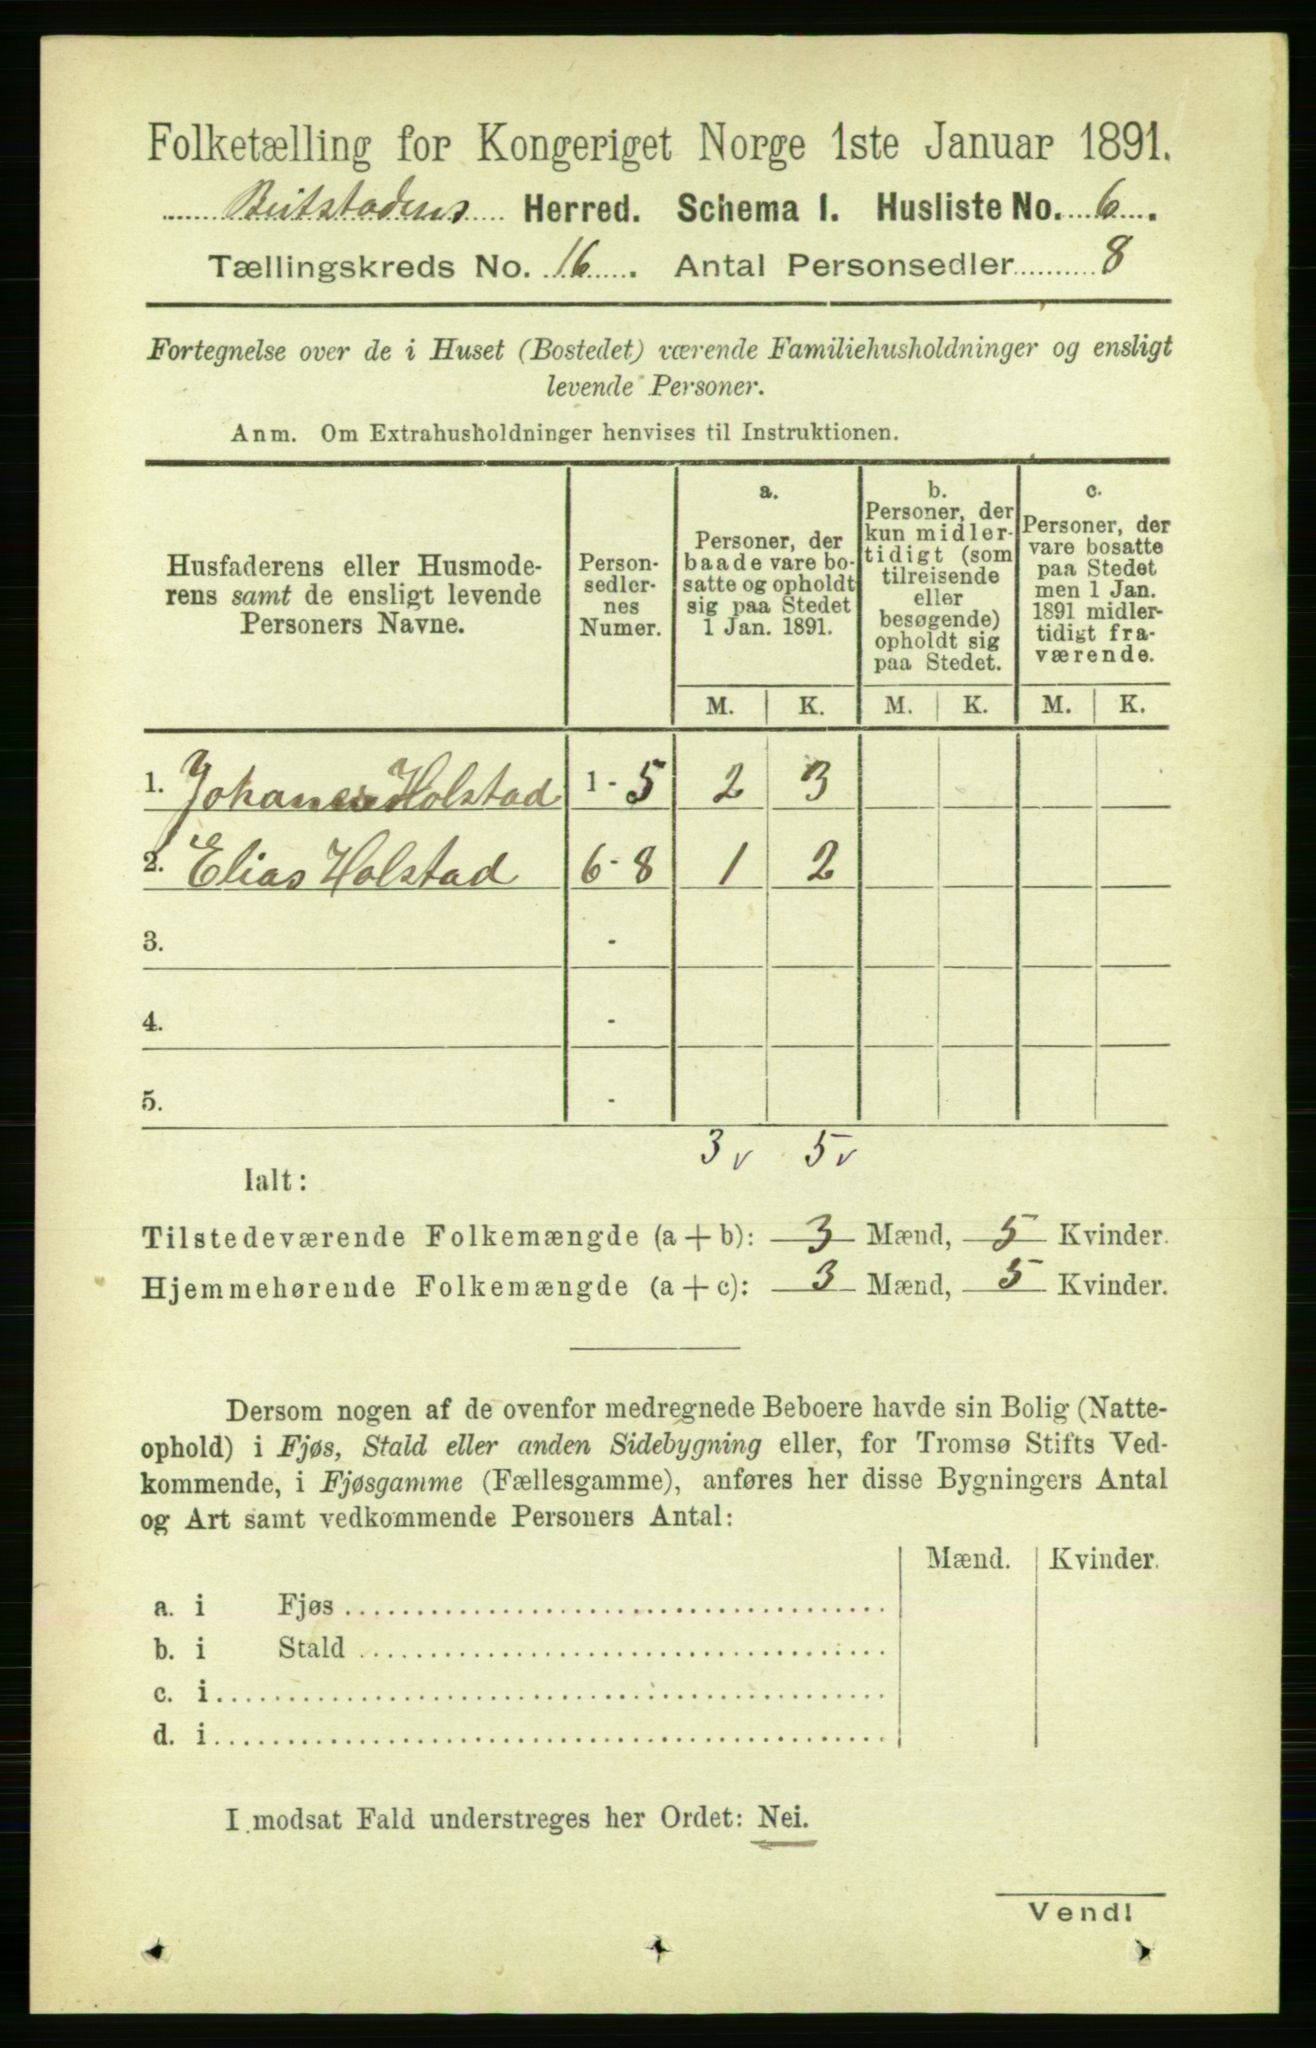 Folketælling for Kongeriget Norge 1ste Januar 1891.
Beitstadens Herred. Schema I. Husliste No. 6.
Tællingskreds No. 16. Antal Personsedler 8
Fortegnelse over de i Huset (Bostedet) værende Familiehusholdninger og ensligt
levende Personer.
Anm. Om Extrahusholdninger henvises til Instruktionen.
Husfaderens eller Husmode-
rens samt de ensligt levende
Personers Navne.
Person-
sedler-
nes
Numer.
a.
Personer, der
baade vare bo-
satte og opholdt
sig paa Stedet
1 Jan. 1891.
b.
Personer, der
kun midler-
tidigt (som
tilreisende
eller
besøgende)
opholdt sig
paa Stedet.
c.
Personer, der
vare bosatte
paa Stedet
men 1 Jan.
1891 midler-
tidigt fra-
værende.
M. K. M. K. M. K.
1. Johanes Holstad 1 - 5 2 3
2. Elias Holstad 6 - 8 1 2
3. -
4. -
5. -
3 v 5 v
Ialt:
Tilstedeværende Folkemængde (a + b): 3 Mænd, 5 Kvinder.
Hjemmehørende Folkemængde (a + c): 3 Mænd, 5 Kvinder.
Dersom nogen af de ovenfor medregnede Beboere havde sin Bolig (Natte-
ophold) i Fjøs, Stald eller anden Sidebygning eller, for Tromsø Stifts Ved-
kommende, i Fjøsgamme (Fællesgamme), anføres her disse Bygningers Antal
og Art samt vedkommende Personers Antal:
Mænd. Kvinder.
a. i Fjøs
b. i Stald
c. i
d. i
I modsat Fald understreges her Ordet: Nei.
Vend!